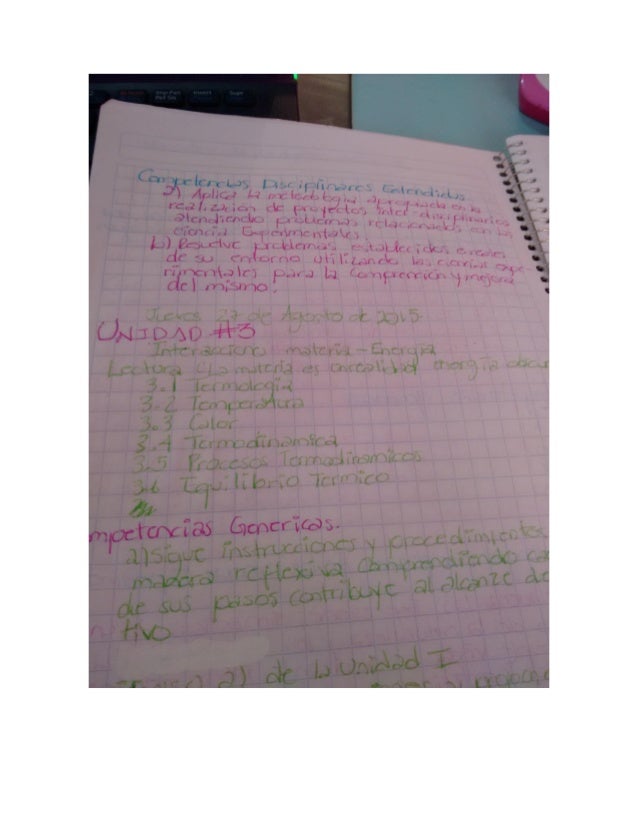 Competencias Disciplinares Extendidas
a) Aplica la metodologia apropiada en la
realización de proyectos inter-disciplinarios
atendiendo problemas relacionados con las
ciencia Experimentales.
b) Resuelve problemas establecidos o reales
de su entorno utilizando las ciencias expe-
rimentales para la comprención y mejora
del mismo.
Jueves 27 de Agosto de 2015
UNIDAD #3
Interacciones materia - Energía
Lectura "La materia es en realidad energía
3.1 Termologia
3.2 Temperatura
3.3 Calor
3.4 Termodinamica
3.5 Procesos Termodinamicos
3.6 Equilibrio Termico
mpetencias Genericas.
a) Sigue instrucciones y procedimientos
manera reflexiva comprendiendo ca
de sus pasos contribuye al alcanze de
tivo
a) de la Unidad I